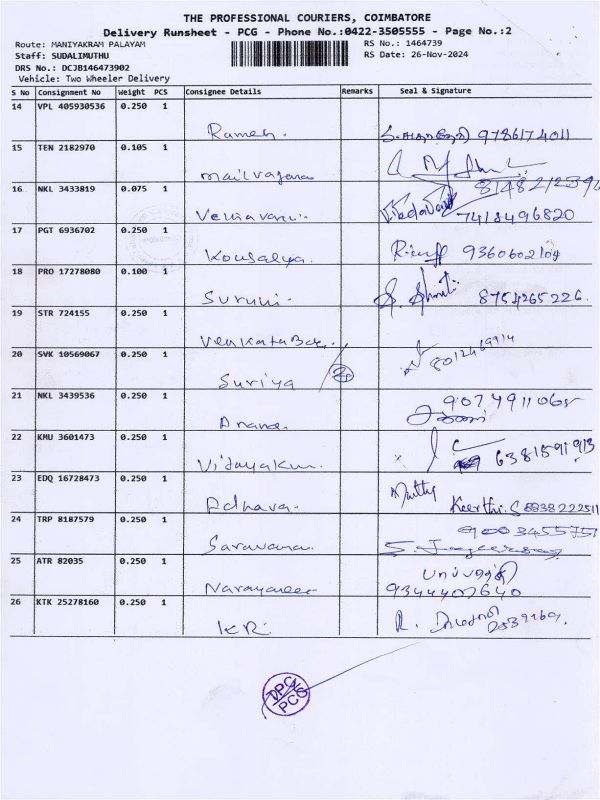 THE PROFESSIONAL COURIERS, COIMBATORE
Delivery Runsheet - PCG - Phone No.:0422-3505555 - Page No.:2
Route: MANIYAKRAM PALAYAM RS No.: 1464739
Staff: SUDALIMUTHU RS Date: 26-Nov-2024
DRS No.: DCJB146473902
Vehicle: Two Wheeler Delivery
S No Consignment No Weight PCS Consignee Details Remarks Seal & Signature
14 VPL 405930536 0.250 1
Ramesh. 9786174011
15 TEN 2182970 0.105 1
mailvagana
16 NKL 3433819 0.075 1 8148212396
7418496820
17 PGT 6936702 0.250 1
Kousalya. 9360602104
18 PRO 17278080 0.100 1
8754265226.
19 STR 724155 0.250 1
20 SVK 10569067 0.250 1
Suriya
21 NKL 3439536 0.250 1
Anand.
22 KMU 3601473 0.250 1
Vijayakum. 6381591913
23 EDQ 16728473 0.250 1 Muthu
Keerthi.S 8838222511
24 TRP 8187579 0.250 1 9003455757
Saravana.
25 ATR 82035 0.250 1
9344407640
26 KTK 25278160 0.250 1
KR
DPC
PCG